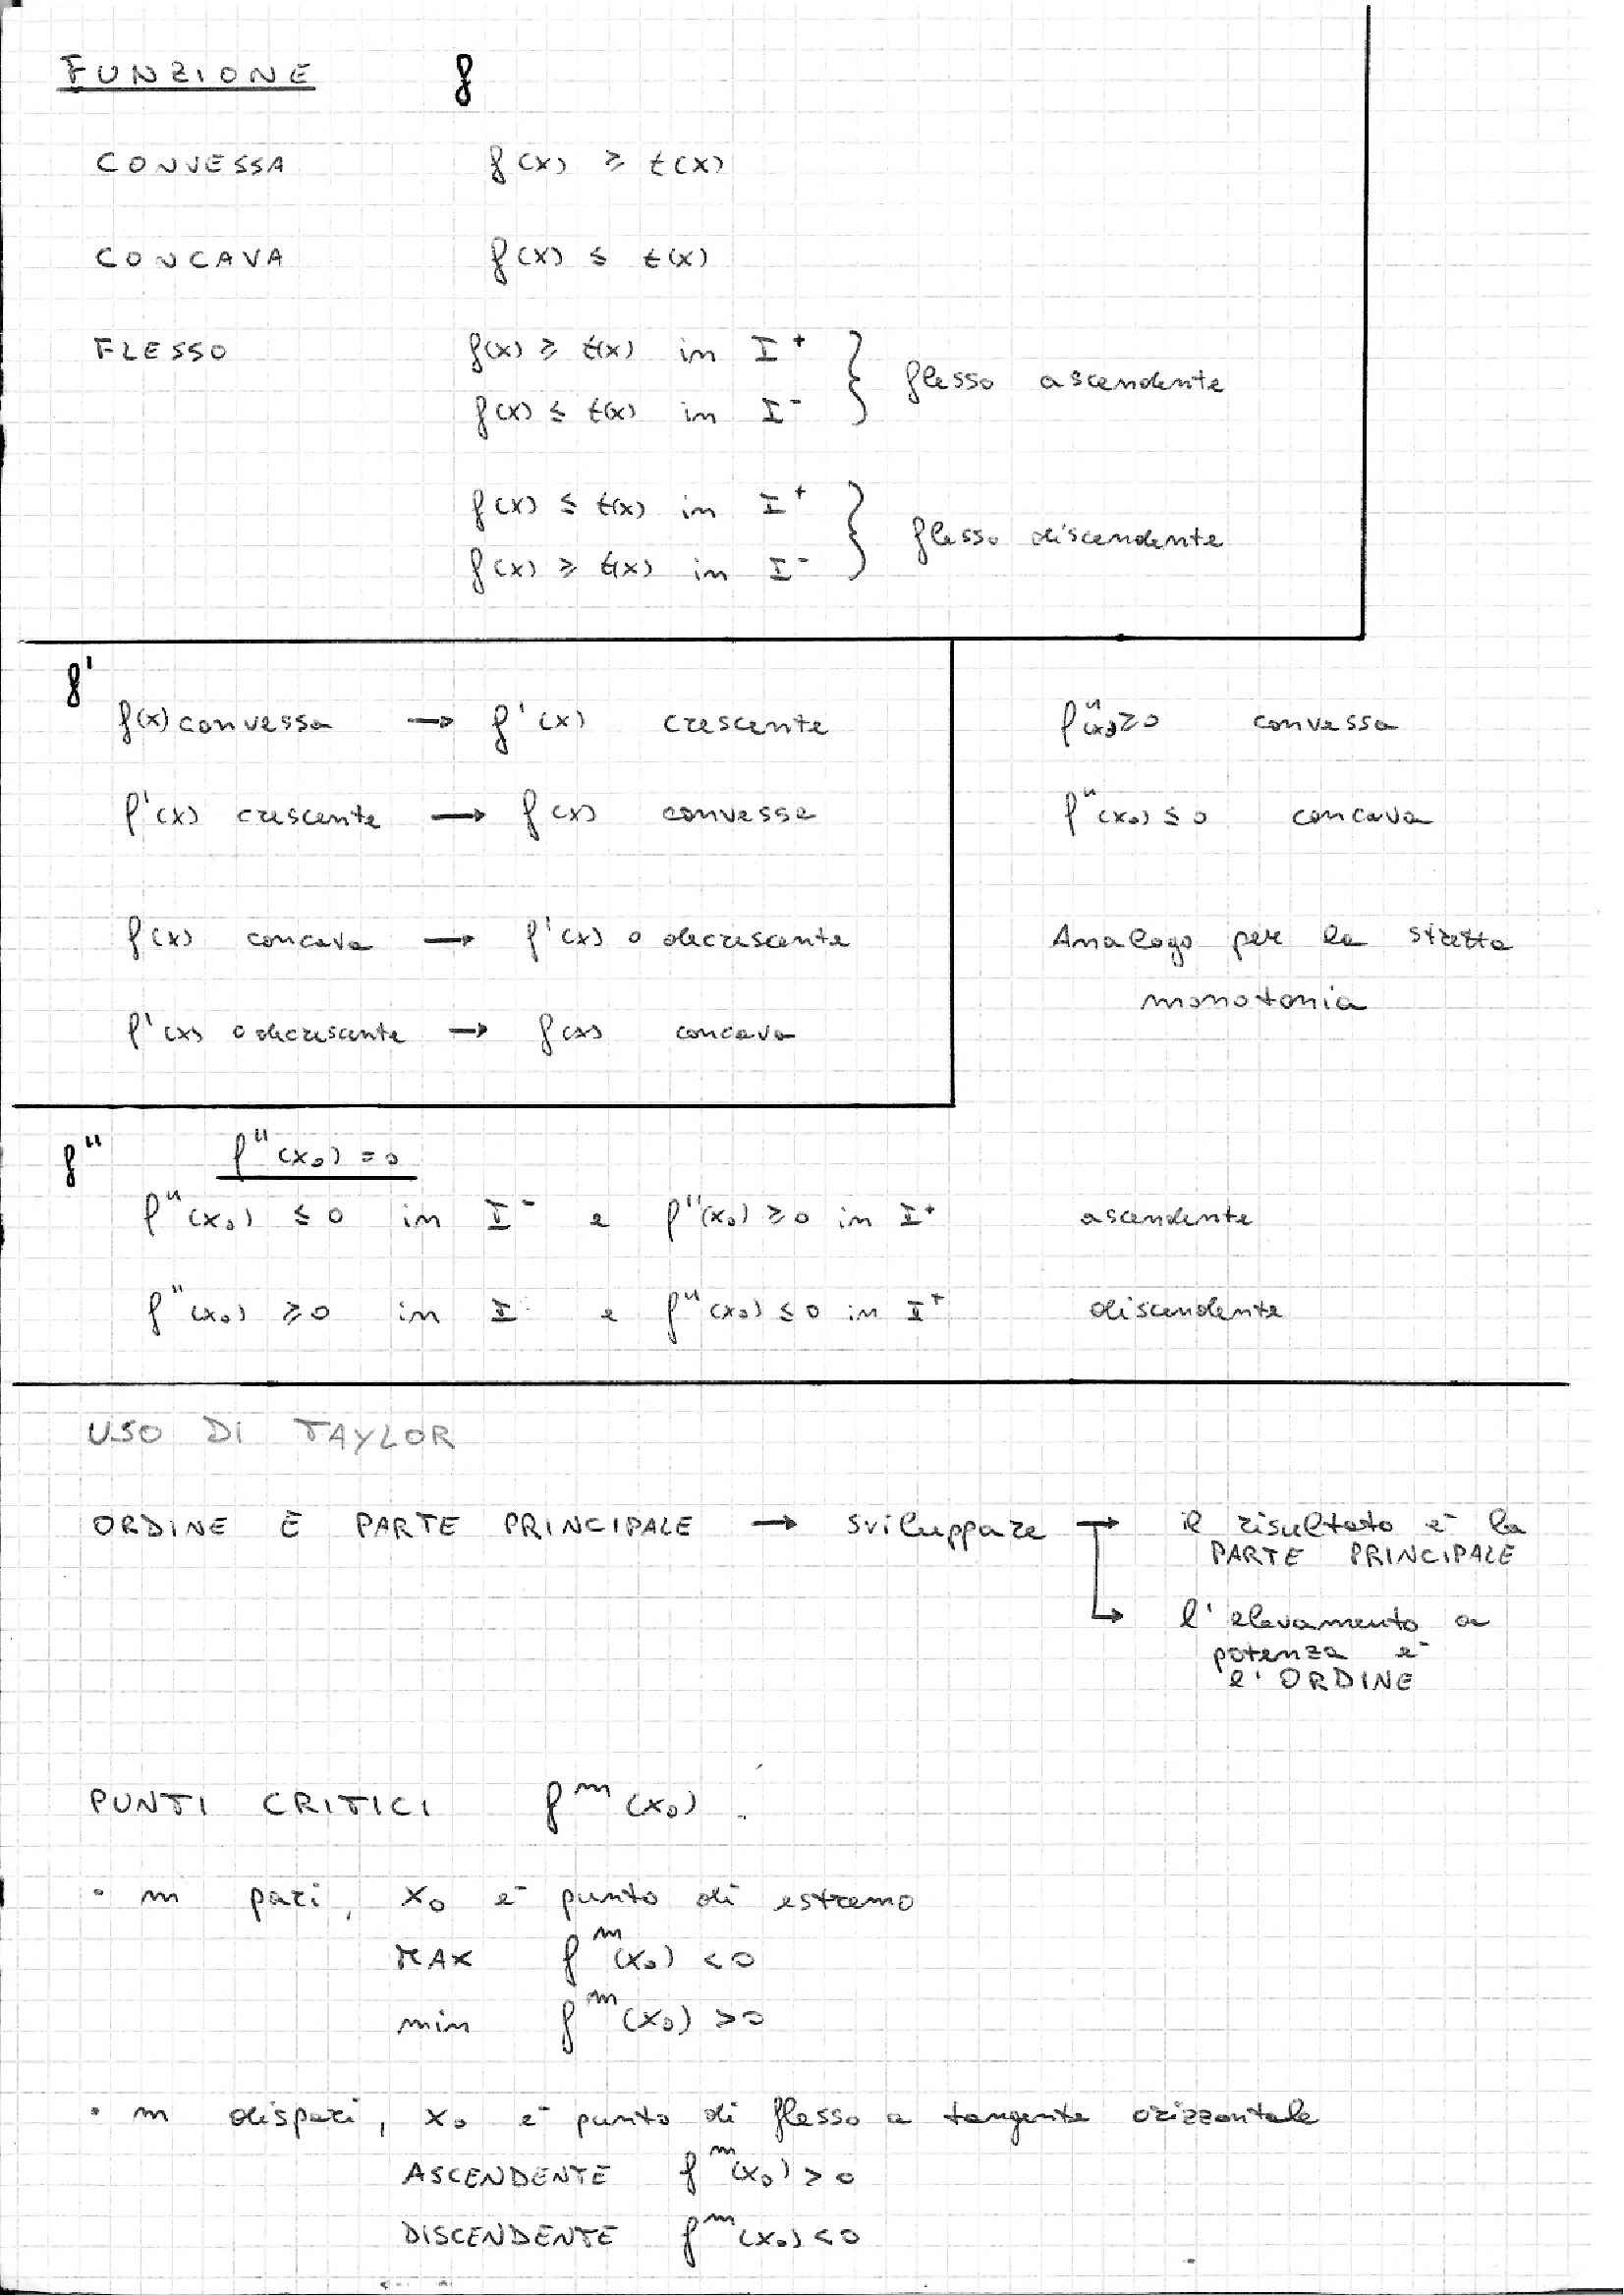 FUNZIONE f
CONVESSA f(x) ≥ t(x)
CONCAVA f(x) ≤ t(x)
FLESSO f(x) ≥ t(x) in I⁺ } flesso ascendente
f(x) ≤ t(x) in I⁻
f(x) ≤ t(x) in I⁺ } flesso discendente
f(x) ≥ t(x) in I⁻
f'
f(x) convessa → f'(x) crescente
f'(x) crescente → f(x) convessa
f(x) concava → f'(x) decrescente
f'(x) decrescente → f(x) concava
f''(x₀) ≥ 0 convessa
f''(x₀) ≤ 0 concava
Analogo per la stretta
monotonia
f'' f''(x₀) = 0
f''(x₀) ≤ 0 in I⁻ e f''(x₀) ≥ 0 in I⁺ ascendente
f''(x₀) ≥ 0 in I⁻ e f''(x₀) ≤ 0 in I⁺ discendente
USO DI TAYLOR
ORDINE E PARTE PRINCIPALE → sviluppare → il risultato è la
PARTE PRINCIPALE
→ l'elevamento a
potenza è
l'ORDINE
PUNTI CRITICI fᵐ(x₀)
• m pari, x₀ è punto di estremo
MAX fᵐ(x₀) < 0
min fᵐ(x₀) > 0
• m dispari, x₀ è punto di flesso a tangente orizzontale
ASCENDENTE fᵐ(x₀) > 0
DISCENDENTE fᵐ(x₀) < 0